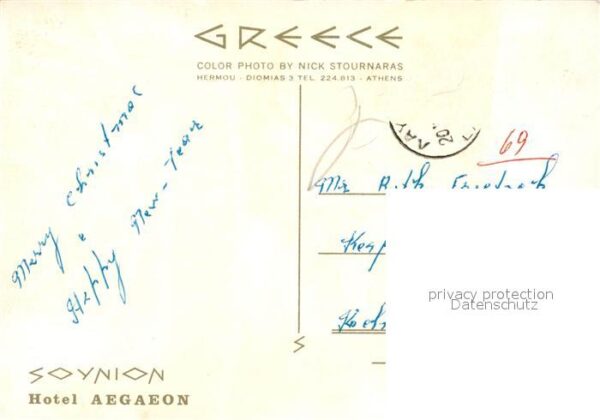 GREECE
COLOR PHOTO BY NICK STOURNARAS
HERMOU - DIOMIAS 3 TEL. 224.813 - ATHENS
Merry Christmas
Happy New-Year
20.
69
privacy protection
Datenschutz
S
SOYNION
Hotel AEGAEON